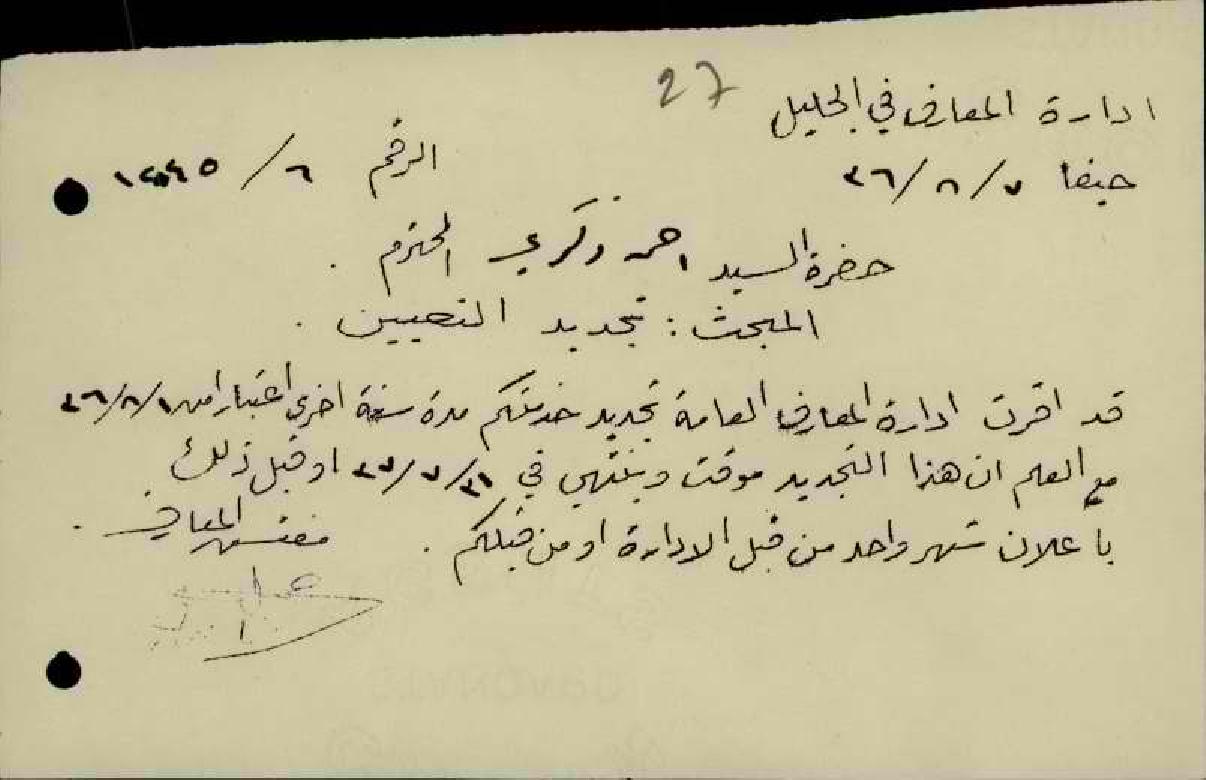 27
ادارة المعارف في الجليل
حيفا ٧/٨/٤٦
الرقم ٦/
حضرة السيد احمد زكري المحترم .
المبحث : تجديد التعيين .
قد اقرت ادارة المعارف العامة تجديد خدمتكم مدة سنة اخرى اعتبارا من ١/٨/٤٦
مع العلم ان هذا التجديد موقت وينتهي في ٣١/٧/٤٧ او قبل ذلك
باعلان شهر واحد من قبل الادارة او من قبلكم .
مفتش المعارف .